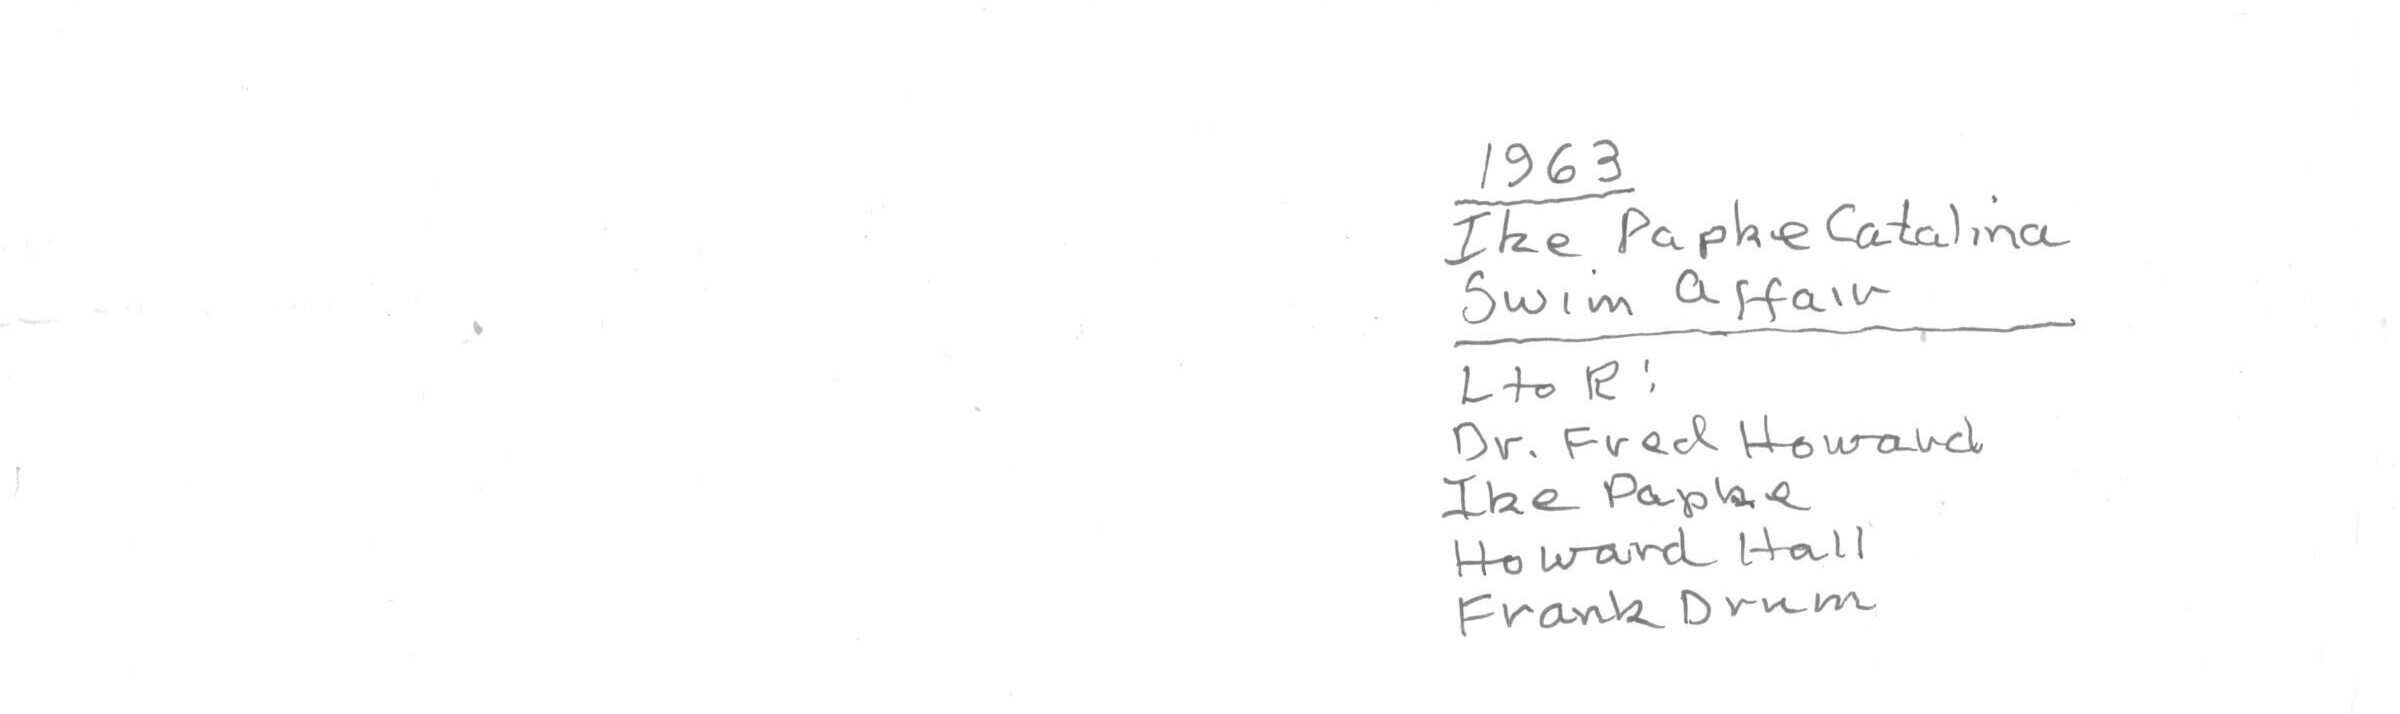 1963
Ike Papke Catalina
Swim Affair
L to R:
Dr. Fred Howard
Ike Papke
Howard Hall
Frank Drum